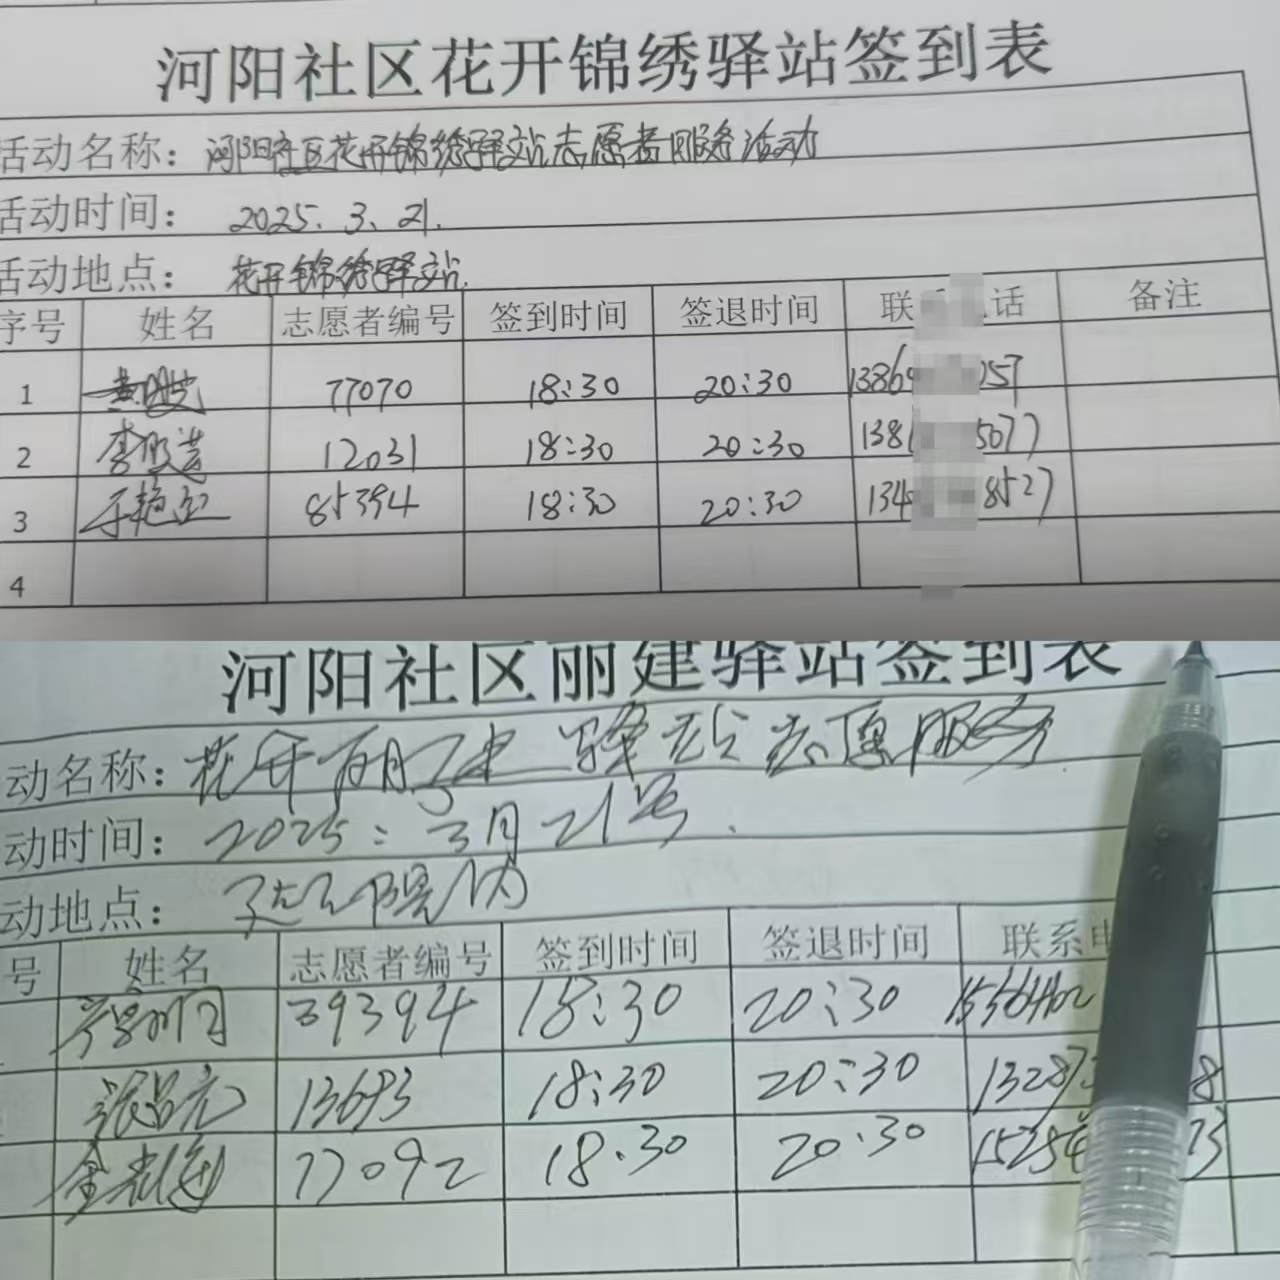 河阳社区花开锦绣驿站签到表
活动名称：河阳社区花开锦绣驿站志愿者服务活动
活动时间：2025.3.21.
活动地点：花开锦绣驿站
序号 姓名 志愿者编号 签到时间 签退时间 联 话 备注
1 77070 18:30 20:30 1386 257
2 12031 18:30 20:30 138 5077
3 于艳 85394 18:30 20:30 134 8527
4
河阳社区丽建驿站签到表
动名称：花开丽建 驿站志愿服务
动时间：2025：3月21号.
动地点：
号 姓名 志愿者编号 签到时间 签退时间 联系
39394 18:30 20:30
张 13693 18:30 20:30 13287 8
金 77092 18.30 20.30 15254 3